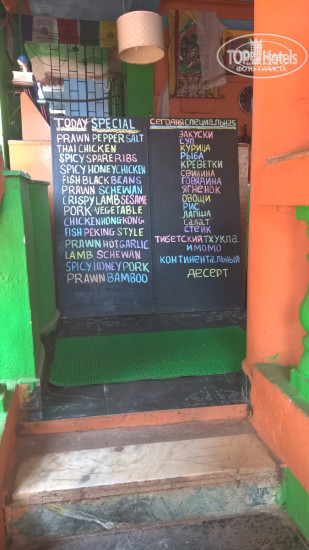 TOPHOTELS
ФОТО ТУРИСТА
TODAY SPECIAL
PRAWN PEPPER SALT
THAI CHICKEN
SPICY SPARE RIBS
SPICY HONEY CHICKEN
FISH BLACK BEANS
PRAWN SCHEWAN
CRISPY LAMB SESAME
PORK VEGETABLE
CHICKEN HONGKONG
FISH PEKING STYLE
PRAWN HOT GARLIC
LAMB SCHEWAN
SPICY HONEY PORK
PRAWN BAMBOO
СЕГОДНЯ СПЕЦИАЛЬНАЯ
ЗАКУСКИ
СУП
КУРИЦА
РЫБА
КРЕВЕТКИ
СВИНИНА
ГОВЯДИНА
ЯГНЕНОК
ОВОЩИ
РИС
ЛАПША
САЛАТ
СТЕЙК
ТИБЕТСКИЙ ТХУКПА
И МОМО
КОНТИНЕНТАЛЬНЫЙ
ДЕСЕРТ